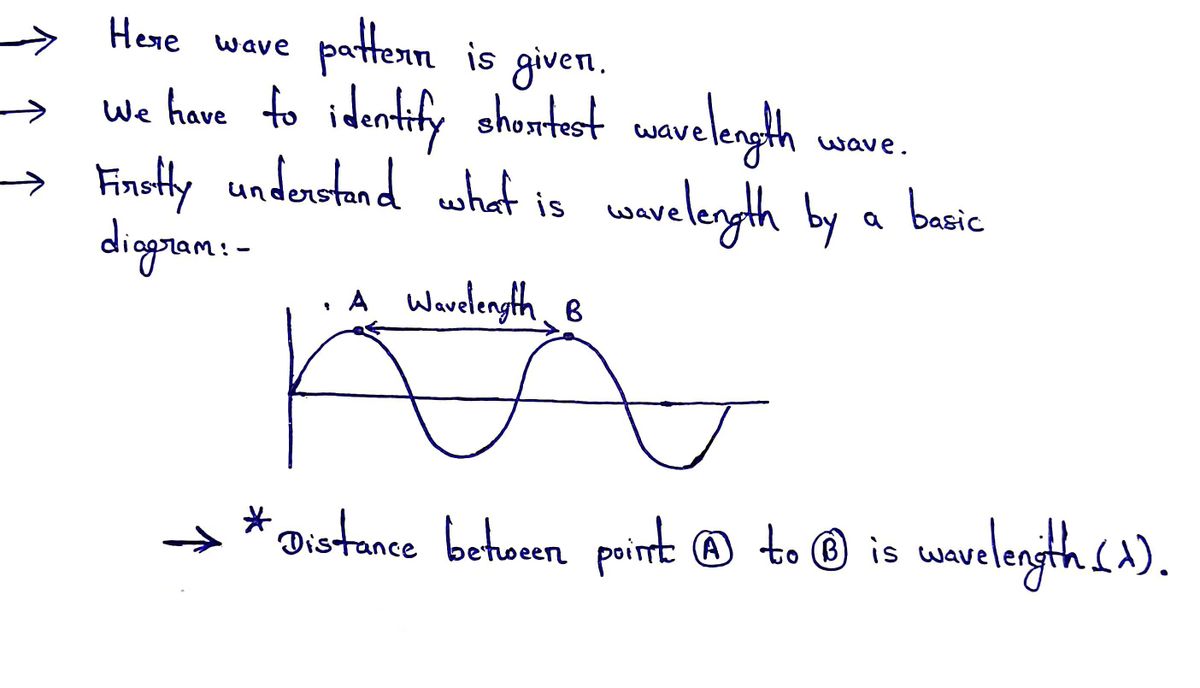 → Here wave pattern is given.
→ We have to identify shortest wavelength wave.
→ Firstly understand what is wavelength by a basic
diagram:-
A Wavelength B
→ * Distance between point Ⓐ to Ⓑ is wavelength (λ).